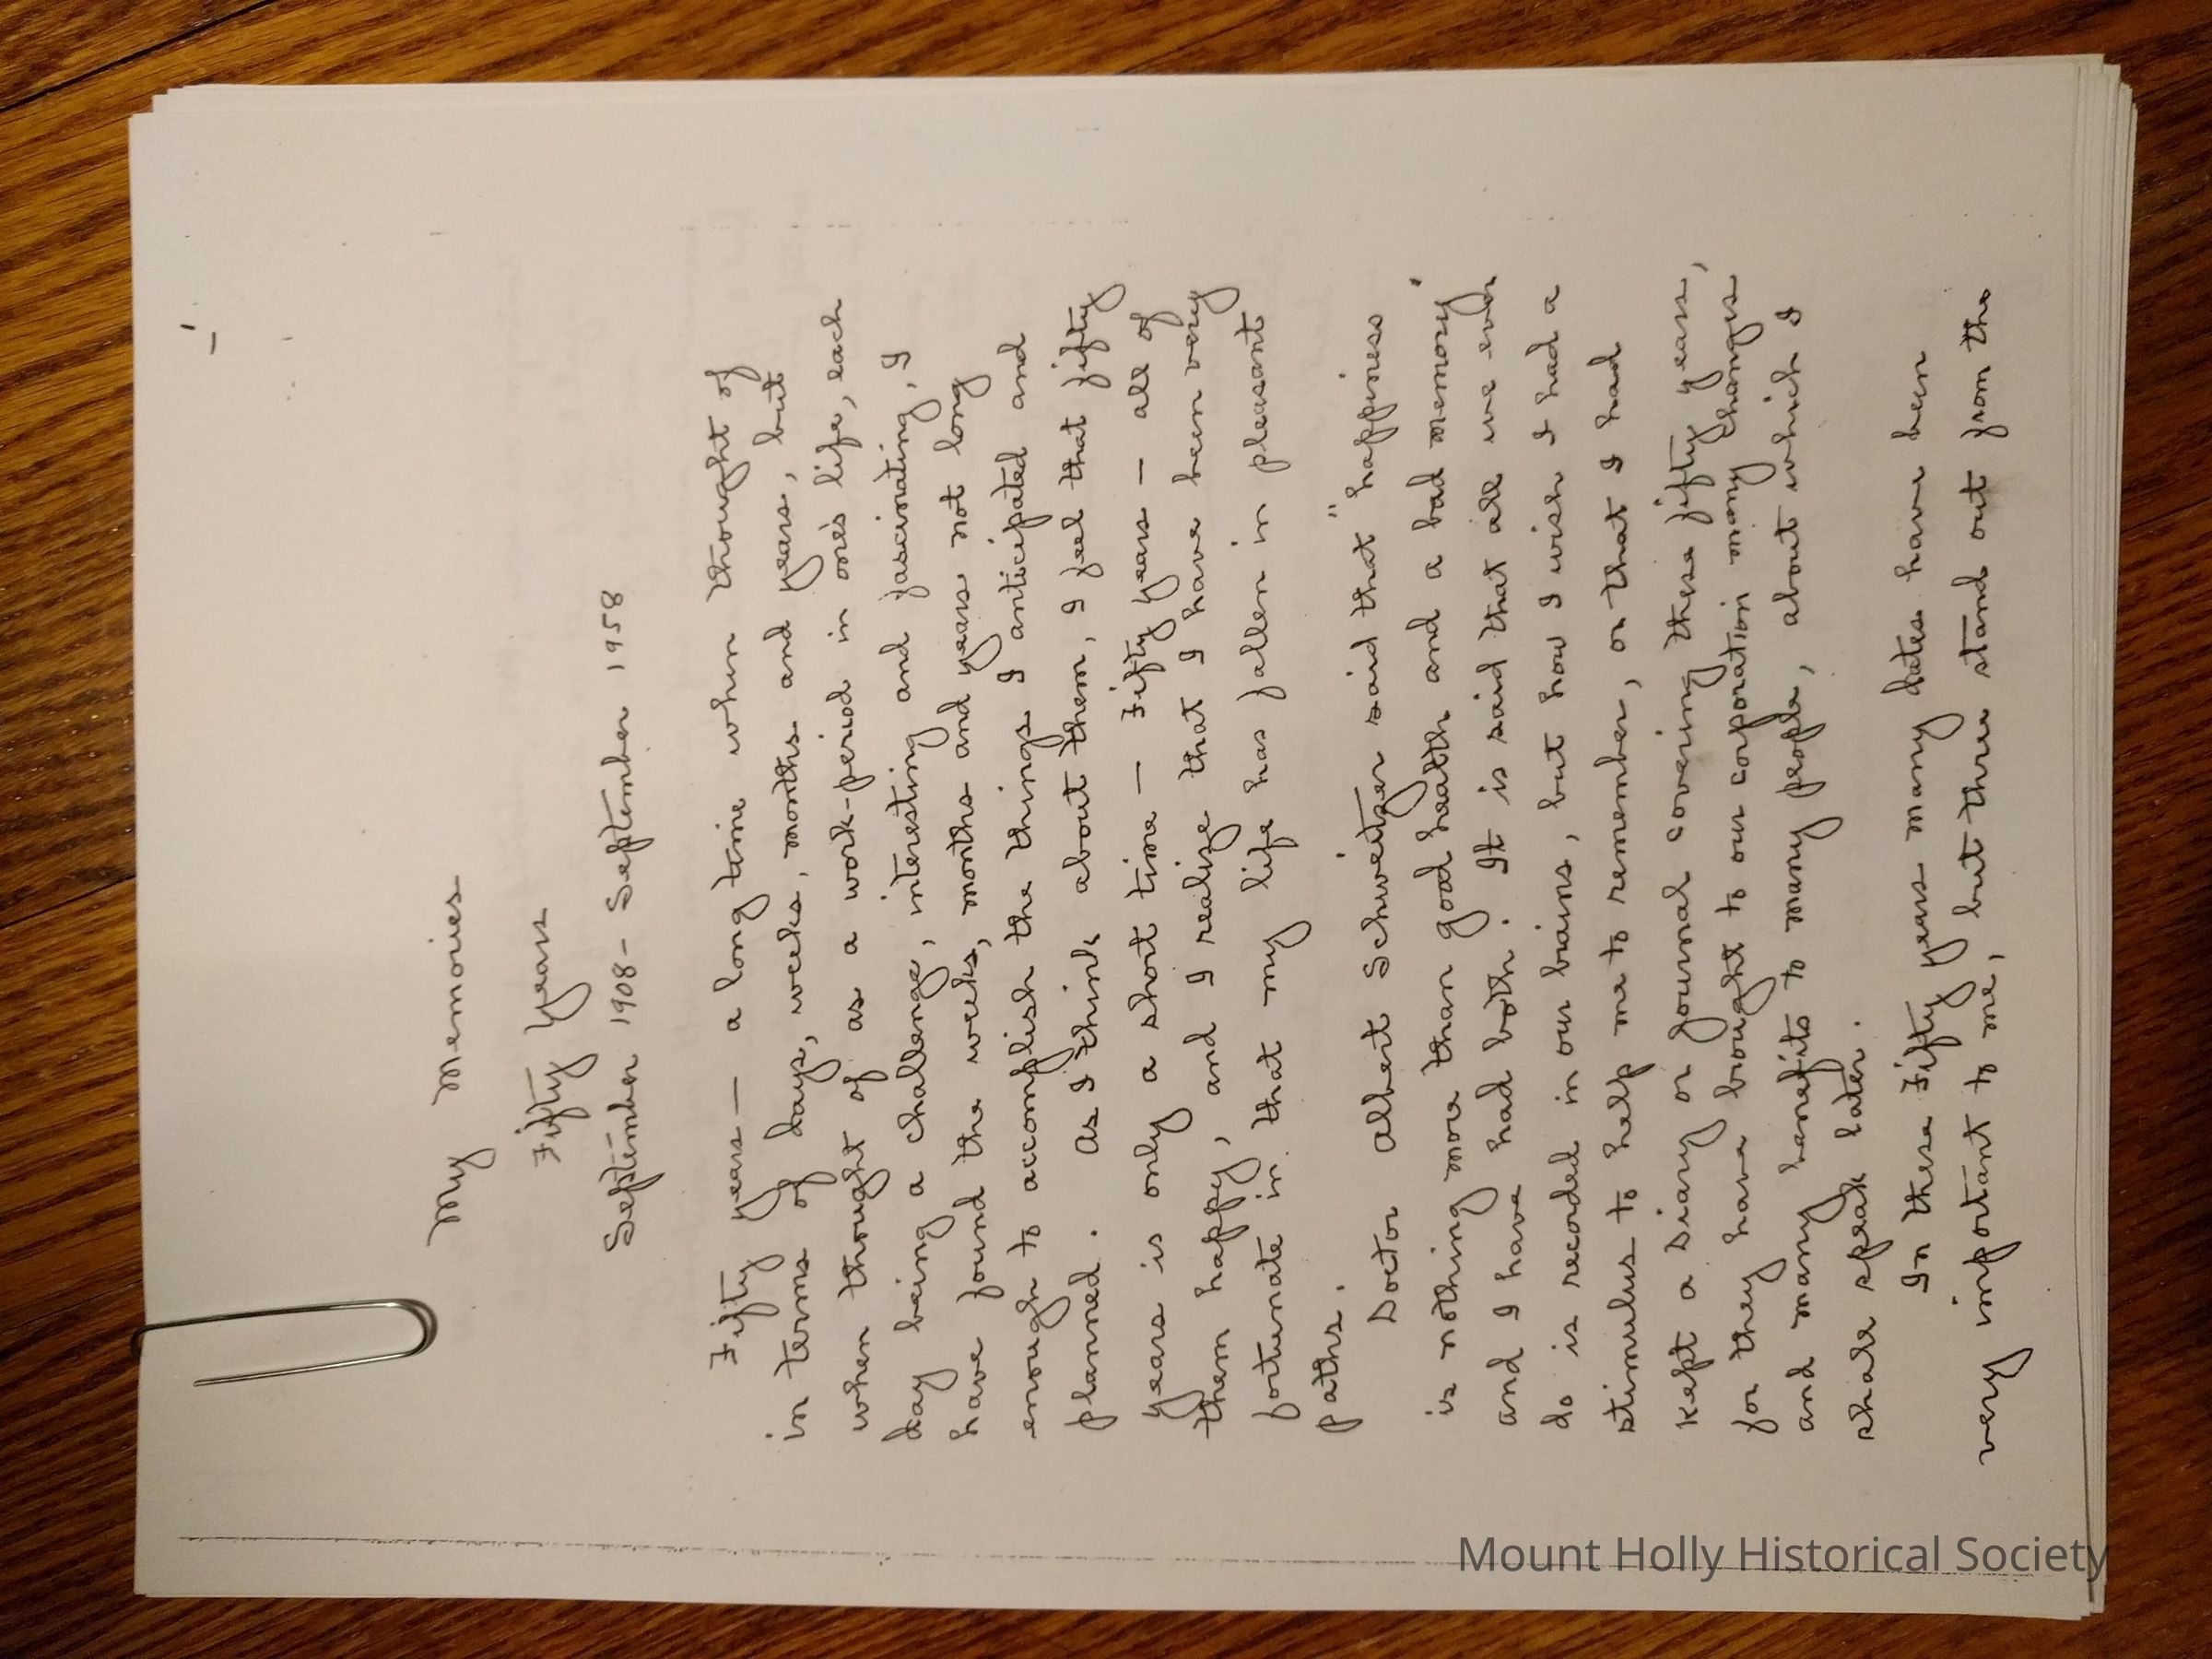 -1-
My Memories
Fifty years
September 1908 - September 1958
Fifty years — a long time when thought of
in terms of days, weeks, months and years, but
when thought of as a work-period in one's life, each
day being a challenge, interesting and fascinating, I
have found the weeks, months and years not long
enough to accomplish the things I anticipated and
planned. As I think about them, I feel that fifty
years is only a short time — Fifty years — all of
them happy, and I realize that I have been very
fortunate in that my life has fallen in pleasant
paths.
Doctor Albert Schweitzer said that "happiness
is nothing more than good health and a bad memory"
and I have had both. It is said that all we ever
do is recorded in our brains, but how I wish I had a
stimulus to help me to remember, or that I had
kept a diary or journal covering these fifty years,
for they have brought to our corporation many changes
and many benefits to many people, about which I
shall speak later.
In these Fifty years many dates have been
very important to me, but three stand out from the
Mount Holly Historical Society